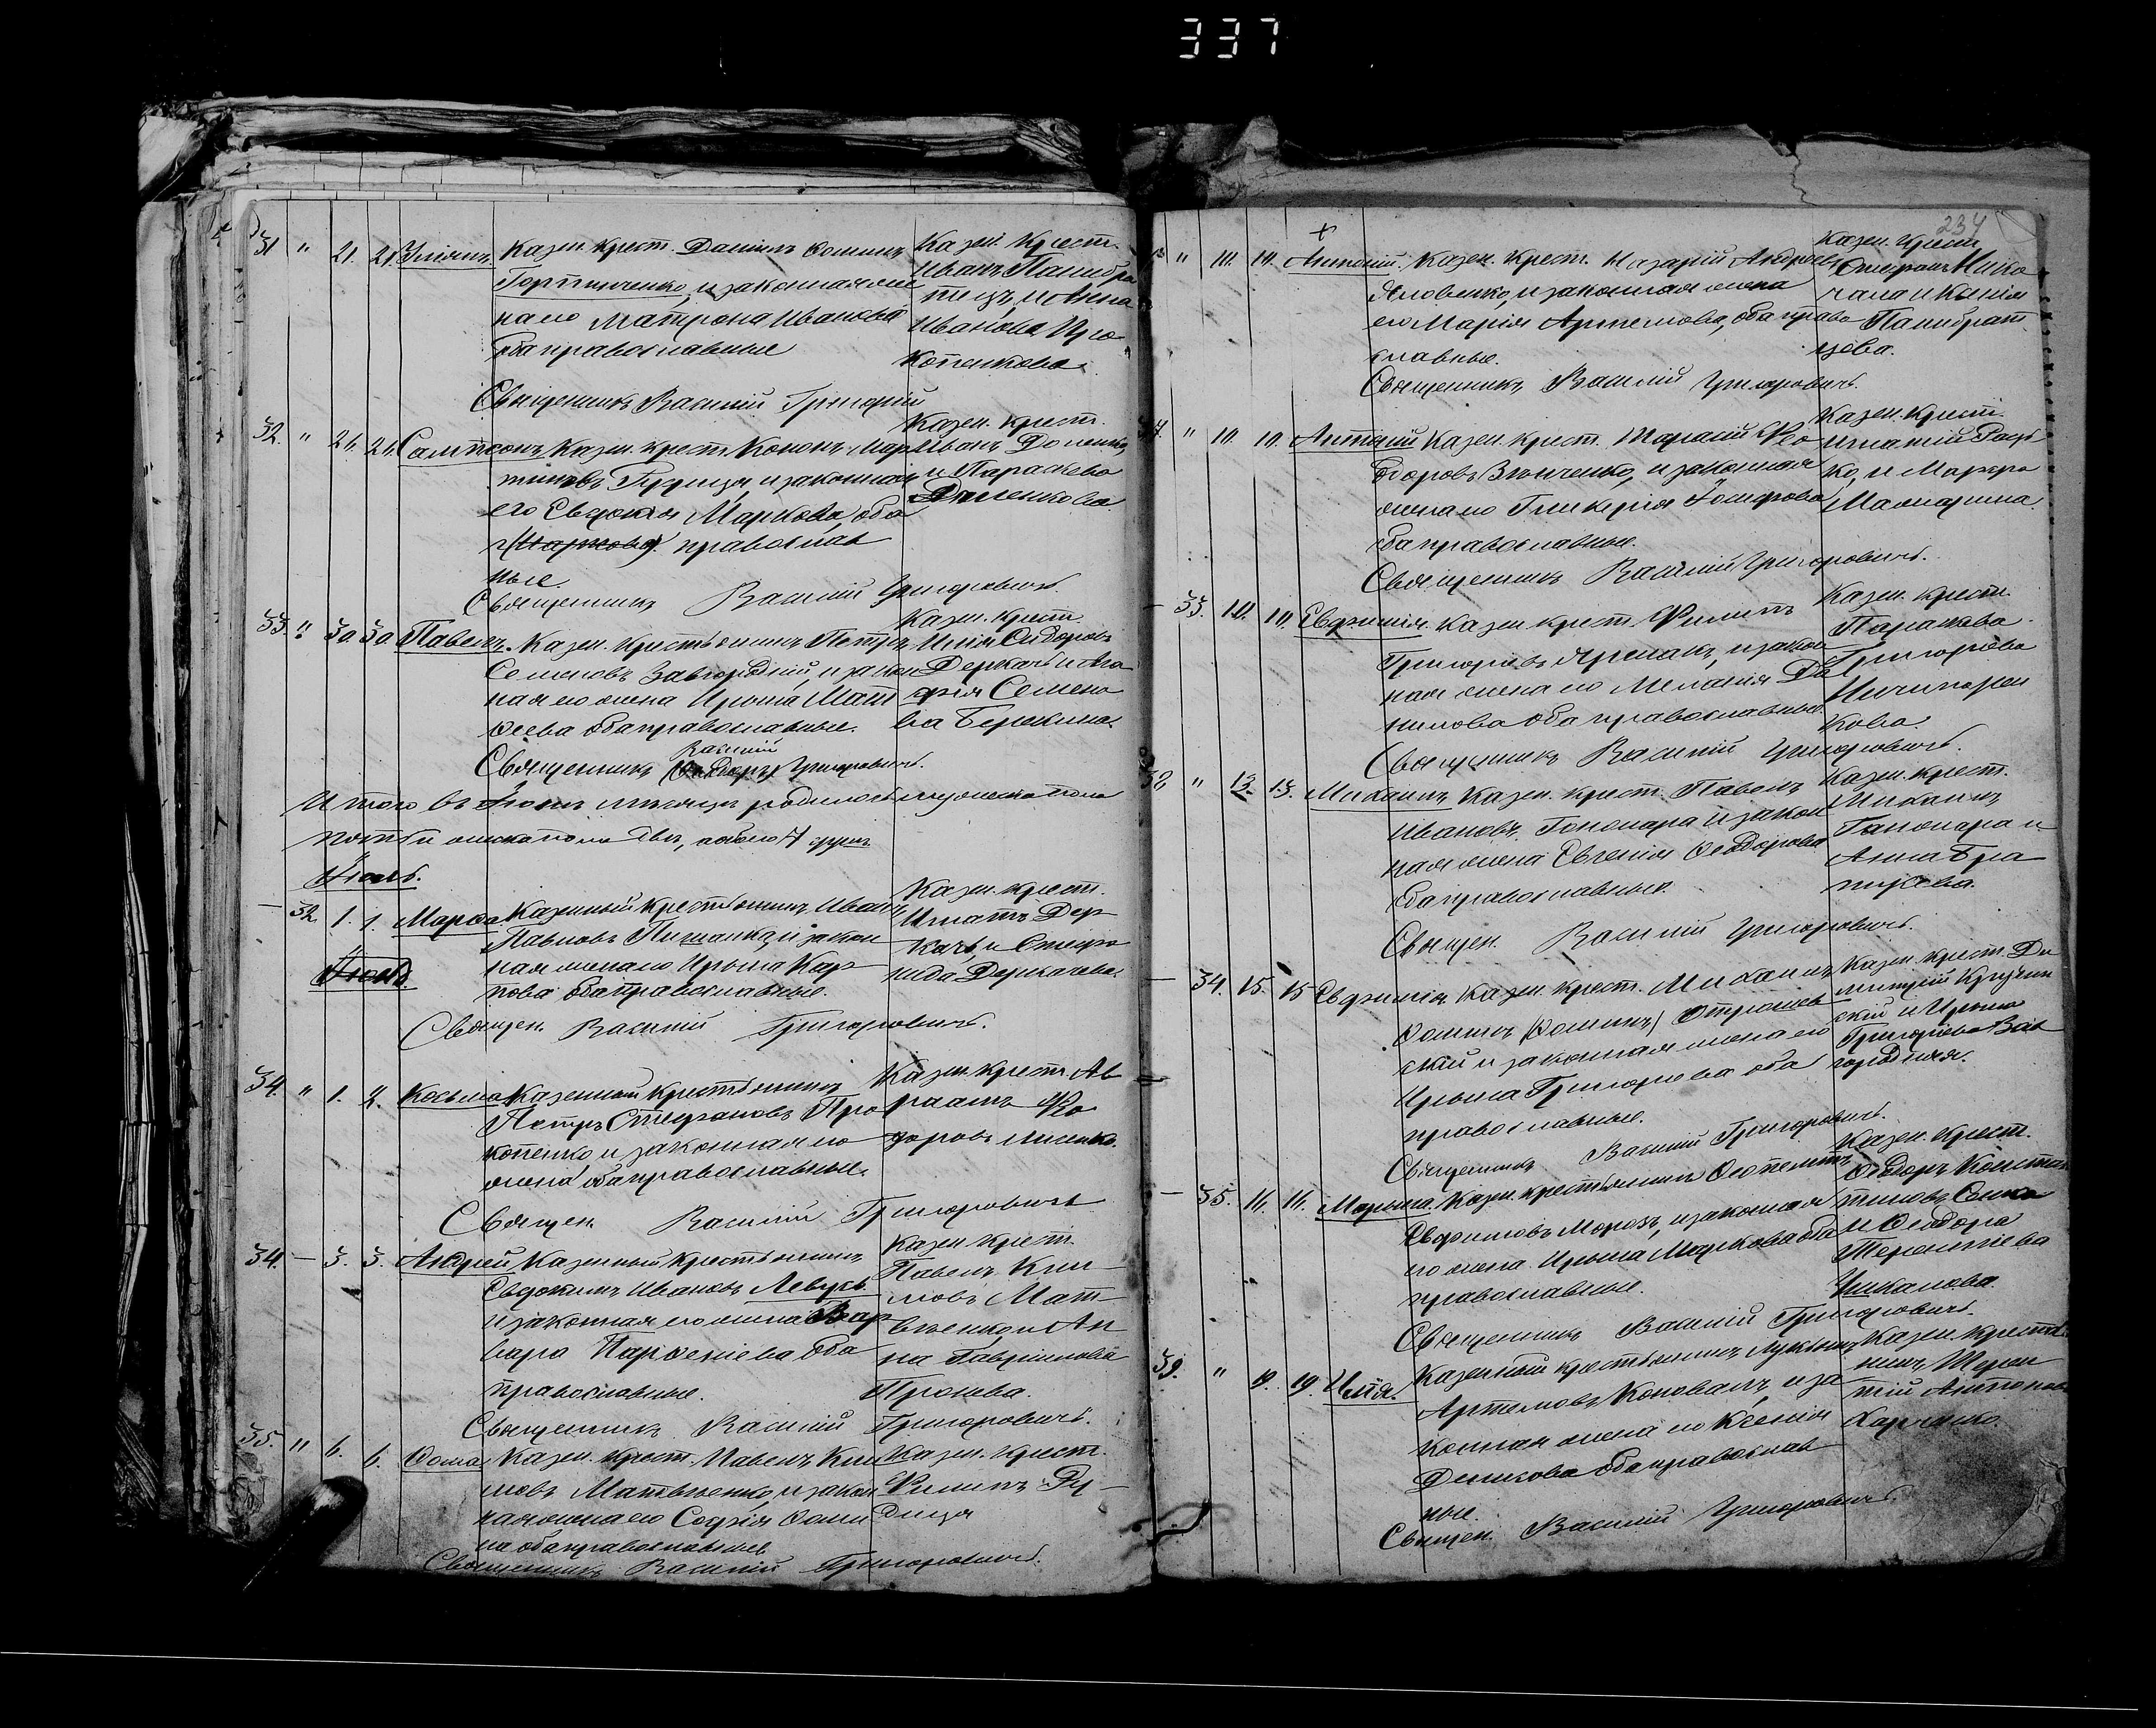 337
234
31 " 21. 21. Казен. крест. Даниилъ Фоминъ
Гортинченко, и законная же
на его Матрона Иванова
оба православные
Казен. Крест.
Иванъ Панибра
тецъ, и Анна
Иванова Про
копенкова.
Священникъ Василий Григорий
32. " 24. 24. Сампсонъ Казен. крест. Кононъ Мар
тиновъ Рудица, и законная
его Евдокия Маркова, оба
православ
ные
Казен. крест.
Иванъ Доленко
и Параскева
Доленкова
Священникъ Василий Григоровичъ.
33. " 30 30 Павелъ. Казен. крестьянинъ Петръ
Семеновъ Завгородний, и закон
ная его жена Ирына Мат
феева оба православные.
Казен. крест.
Илия Сидоровъ
Деркачъ и Ага
фия Семено
ва Бережина.
Священникъ Василий Григоровичъ.
Итого въ Іюнѣ мѣсяцѣ родилось мужеска пола
пять и женска пола два, обоего 7 душъ
Іюль.
— 32. 1. 1. Марфа Казенный крестьянинъ Иванъ
Павловъ и закон
ная жена его Ирына Кар
пова оба православные.
Казен. крест.
Игнатъ Дер
качъ, и Степа
нида Деркачева.
Іюль.
Священ. Василий Григоровичъ.
34. " 1. 2. Косьма Казенный крестьянинъ
Петръ Стефановъ Про
копенко и законная его
жена оба православные.
Казен. крест. Ав
раамъ Фео
доровъ Лисенко.
Священ. Василий Григоровичъ
34. — 3. 3. Андрей Казенный крестьянинъ
Евдокимъ Ивановъ Левусъ
и законная его жена Вар
вара Парфениева оба
православные.
Казен. крест.
Павелъ Кли
мовъ Мат
вѣенко и Ан
на Гаврилова
Пронева.
Священникъ Василий Григоровичъ.
35. " 6. 6. Фома. Казен. крест. Павелъ Кли
мовъ Матвѣенко, и закон
ная жена его София Фоми
на оба православные
Казен. крест.
Филипъ Ру
дица
Священникъ Василий Григоровичъ.
" 10. 10. Антоний. Казен. крест. Назарий Андреевъ
Яловенко, и законная жена
его Мария Артемова, оба право
славные.
Казен. крест.
Стефанъ
и Ксения
Панибрат
цева.
Священникъ Василий Григоровичъ.
" 10. 10. Антоний Казен. крест. Тарасий Фео
доровъ Винченко, и законная
жена его Гликерия Іосифова
оба православные.
Казен. крест.
Игнатий
ко, и Марфа
Священникъ Василий Григоровичъ.
— 33. 10. 10. Евфимия. Казен. крест. Филипъ
Григорьевъ Ярмакъ, и закон
ная жена его Мелания Да
нилова оба православные.
Казен. крест.
Параскева
Григорьева
Ничипорен
кова
Священникъ Василий Григоровичъ.
38 " 13. 13. Михаилъ Казен. крест. Павелъ
Ивановъ Гоношара и закон
ная жена Евгения Феодорова
оба православные.
Казен. крест.
Михаилъ
Ганошара и
Анна
Священ. Василий Григоровичъ.
— 34. 15. 15 Евфимия Казен. крест. Михаилъ
Фоминъ (Фоминъ)
ский и законная жена его
Ирына Григорьева оба
православные.
Казен. крест. Ди
митрий Кручин
ский и Ирына
Григорьева Зав
городняя.
Священникъ Василий Григоровичъ.
— 35. 16. 16. Марина. Казен. крестьянинъ Феопемптъ
Евфимовъ Морозъ, и законная
его жена Ирына Маркова оба
православные.
Казен. крест.
Феодоръ Констан
тиновъ
и Феодора
Терентиева
Чикалова.
Священникъ Василий Григоровичъ.
39. " 19. 19. Илия. Казенный крестьянинъ Лукьянъ
Артемовъ Коновалъ, и за
конная жена его Ксения
Денисова оба православ
ные.
Казен. крестья
нинъ Терен
тий Антоновъ
Харченко.
Священ. Василий Григоровичъ.